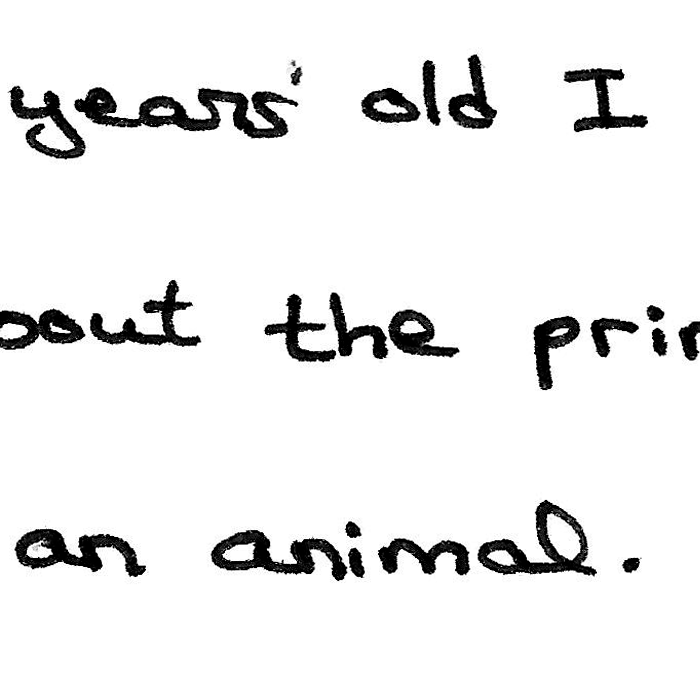 years' old I
bout the prin
an animal.